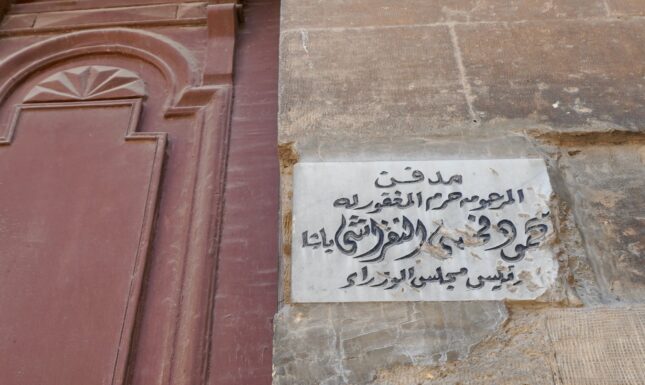 مدفن
المرحومه حرم المغفور له
محمود فهمى النقراشى باشا
رئيس مجلس الوزراء